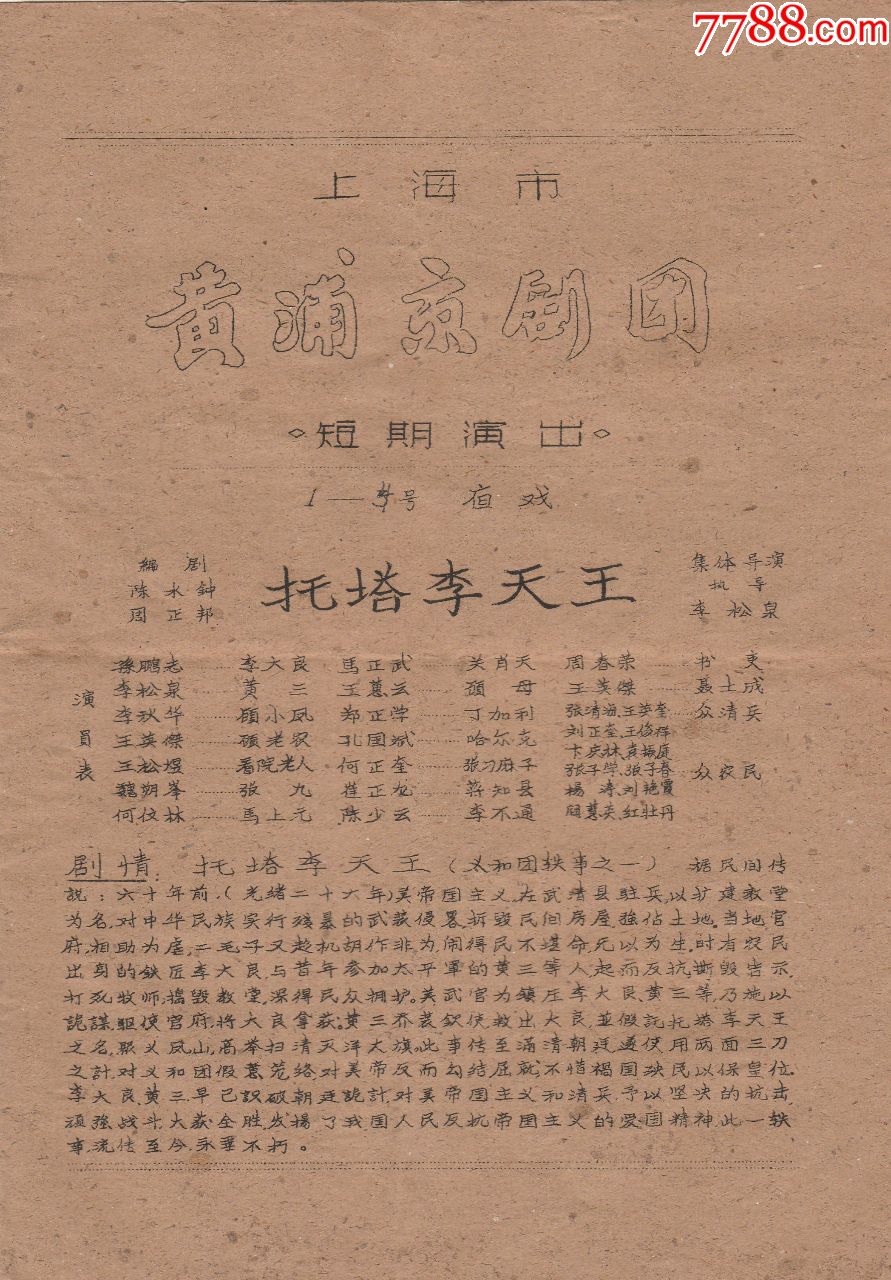 7788.com
上海市
黄浦京剧团
◇短期演出◇
1—4号 夜戏
编剧
陈水钟
周正邦
托塔李天王
集体导演
执导
李松泉
演员表
孫鹏志……李大良 馬正武……关肖天 周春荣……书吏
李松泉……黄三 王蕙云……顾母 王英傑……聂士成
李秋华……顾小凤 郑正学……丁加利 張清海、王英奎 众清兵
王英傑……顾老农 孔国斌……哈尔克 刘正奎、王俊祥
卞庆林、袁振庭
王松煜……看院老人 何正奎……張刁麻子 張子学、張子春 众农民
魏朔峯……張九 崔正龙……蒋知县 楊涛、刘艳霞
何佼林……馬上元 陈少云……李不通 顾蕙英、红牡丹
剧情：托塔李天王（义和团轶事之一）据民间传
説：六十年前，（光绪二十六年）美帝国主义，在武清县駐兵，以扩建教堂
为名，对中华民族实行残暴的武装侵畧，拆毁民间房屋，強佔土地。当地官
府，相助为虐，二毛子又趁机胡作非为，闹得民不堪命，无以为生，时有农民
出身的鉄匠李大良，与昔年参加太平軍的黄三等人，起而反抗，撕毁告示，
打死牧师，捣毁教堂，深得民众拥护。美武官为鎮庄李大良、黄三等，乃施以
詭謀，驱使官府，将大良拿获；黄三乔装钦使，救出大良，並假託托塔李天王
之名，聚义凤山，高举扫清灭洋大旗。此事传至滿清朝廷，遵使用两面三刀
之計，对义和团假意笼络，对美帝反而勾结屈就，不惜禍国殃民以保皇位。
李大良、黄三早已識破朝廷詭計，对美帝国主义和清兵，予以坚决的抗击，
頑強战斗，大获全胜，发揚了我国人民反抗帝国主义的爱国精神，此一轶
事，流传至今，永垂不朽。